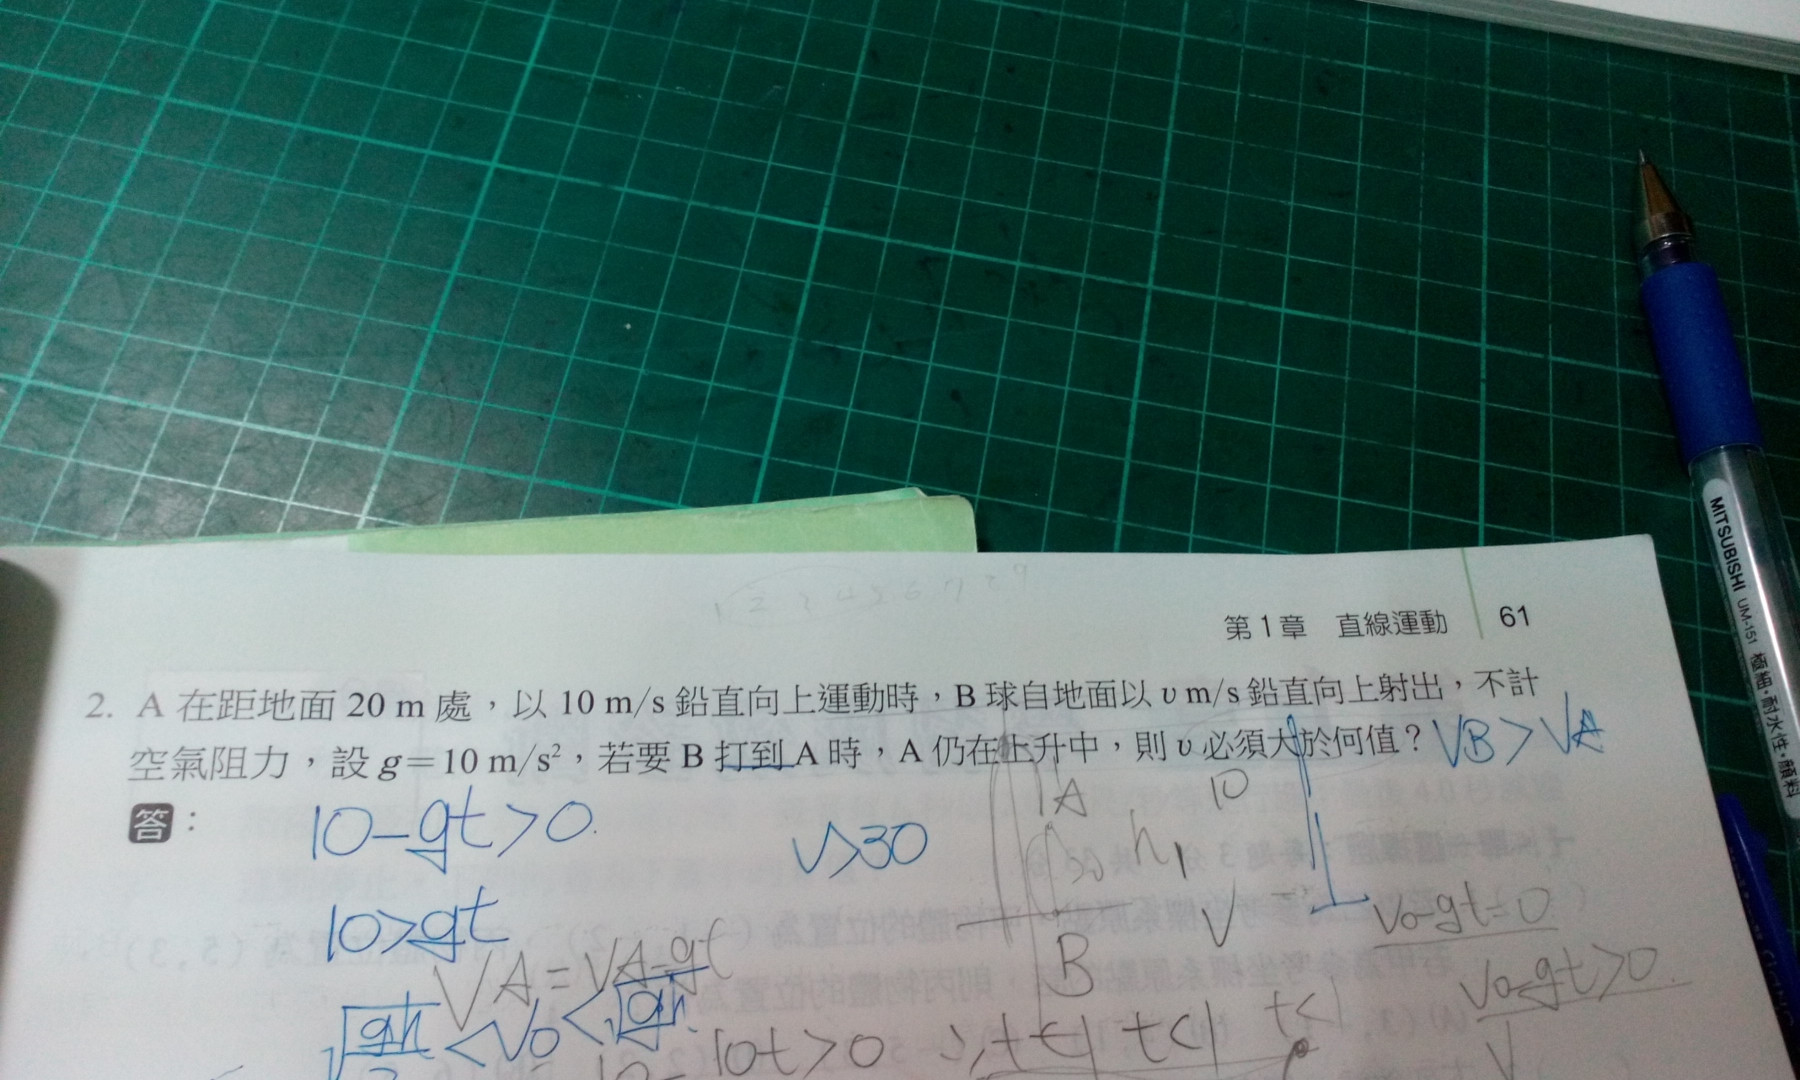 第1章 直線運動 61
2. A 在距地面 20 m 處，以 10 m/s 鉛直向上運動時，B 球自地面以 υ m/s 鉛直向上射出，不計
空氣阻力，設 g＝10 m/s²，若要 B 打到 A 時，A 仍在上升中，則 υ 必須大於何值？ VB > VA
答：
10-gt>0
V>30
A 10
h1
10>gt
V
V0-gt=0
VA=VA-gt
B
V0-gt>0
<V0<
10t>0 t<1 t<1 t<1
MITSUBISHI UM-151 極細・耐水性・顔料